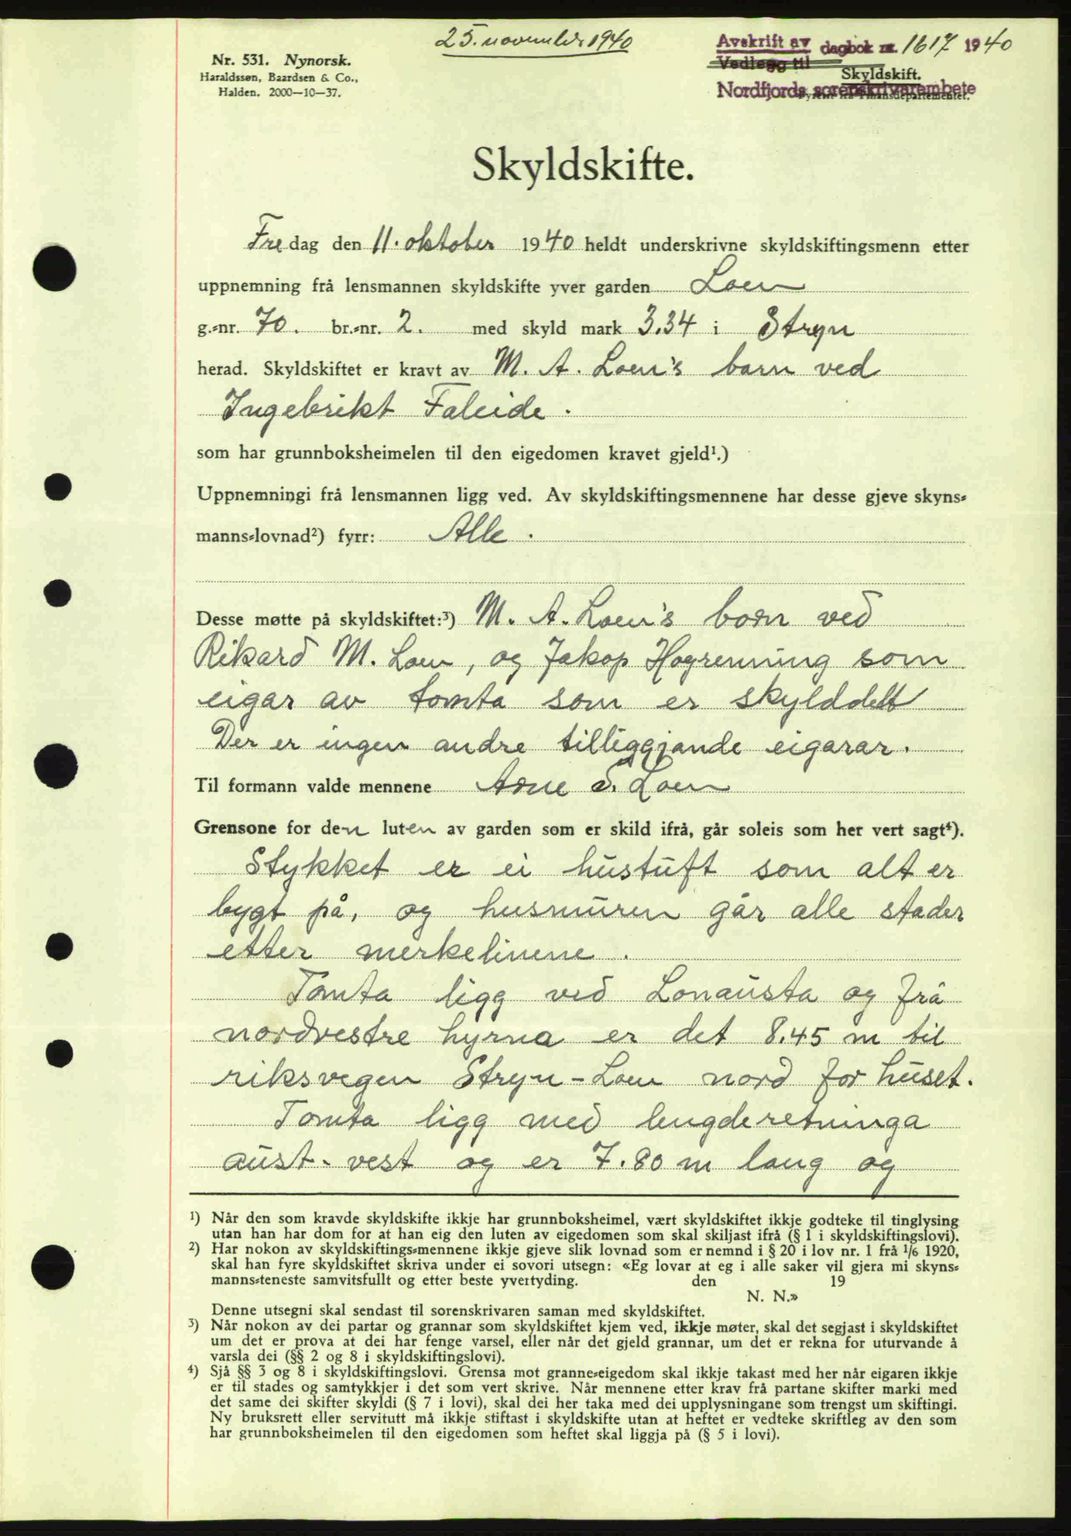 25. november 1940
Avskrift av dagbok nr. 1617 1940
Vedlegg til
Skyldskift.
Nordfjords sorenskrivarembete
Nr. 531. Nynorsk.
Haraldssøn, Baardsen & Co.,
Halden. 2000—10—37.
Skyldskifte.
Fredag den 11. oktober 1940 heldt underskrivne skyldskiftingsmenn etter
uppnemning frå lensmannen skyldskifte yver garden Loen
g.-nr. 70. br.-nr. 2. med skyld mark 3.34 i Stryn
herad. Skyldskiftet er kravt av M. A. Loen's barn ved
Ingebrikt Faleide.
som har grunnboksheimelen til den eigedomen kravet gjeld¹.)
Uppnemningi frå lensmannen ligg ved. Av skyldskiftingsmennene har desse gjeve skyns-
manns-lovnad²) fyrr: Alle.
Desse møtte på skyldskiftet:³) M. A. Loen's born ved
Rikard M. Loen, og Jakop Hogrenning som
eigar av tomta som er skylddelt
Der er ingen andre tilliggjande eigarar.
Til formann valde mennene Arne A. Loen
Grensone for den luten av garden som er skild ifrå, går soleis som her vert sagt⁴).
Stykket er ei hustuft som alt er
bygt på, og husmuren går alle stader
etter merkelinene.
Tomta ligg ved Lonausta og frå
nordvestre hyrna er det 8.45 m til
riksvegen Stryn-Loen nord for huset.
Tomta ligg med lengderetninga
aust-vest og er 7.80 m lang og
¹) Når den som kravde skyldskifte ikkje har grunnboksheimel, vært skyldskiftet ikkje godteke til tinglysing
utan han har dom for at han eig den luten av eigedomen som skal skiljast ifrå (§ 1 i skyldskiftingslovi).
²) Har nokon av skyldskiftings-mennene ikkje gjeve slik lovnad som er nemnd i § 20 i lov nr. 1 frå ¹/₆ 1920,
skal han fyre skyldskiftet skriva under ei sovori utsegn: «Eg lovar at eg i alle saker vil gjera mi skyns-
manns-teneste samvitsfullt og etter beste yvertyding. den 19
N. N.»
Denne utsegni skal sendast til sorenskrivaren saman med skyldskiftet.
³) Når nokon av dei partar og grannar som skyldskiftet kjem ved, ikkje møter, skal det segjast i skyldskiftet
um det er prova at dei har fenge varsel, eller når det gjeld grannar, um det er rekna for uturvande å
varsla dei (§§ 2 og 8 i skyldskiftingslovi).
⁴) Sjå §§ 3 og 8 i skyldskiftingslovi. Grensa mot granne-eigedom skal ikkje takast med her når eigaren ikkje
er til stades og samtykkjer i det som vert skrive. Når mennene etter krav frå partane skifter marki med
det same dei skifter skyldi (§ 7 i lovi), skal dei her taka med dei upplysningane som trengst um skiftingi.
Ny bruksrett eller servitutt må ikkje stiftast i skyldskifte utan at heftet er vedteke skriftleg av den som
har grunnboksheimelen til den eigedomen som heftet skal liggja på (§ 5 i lovi).